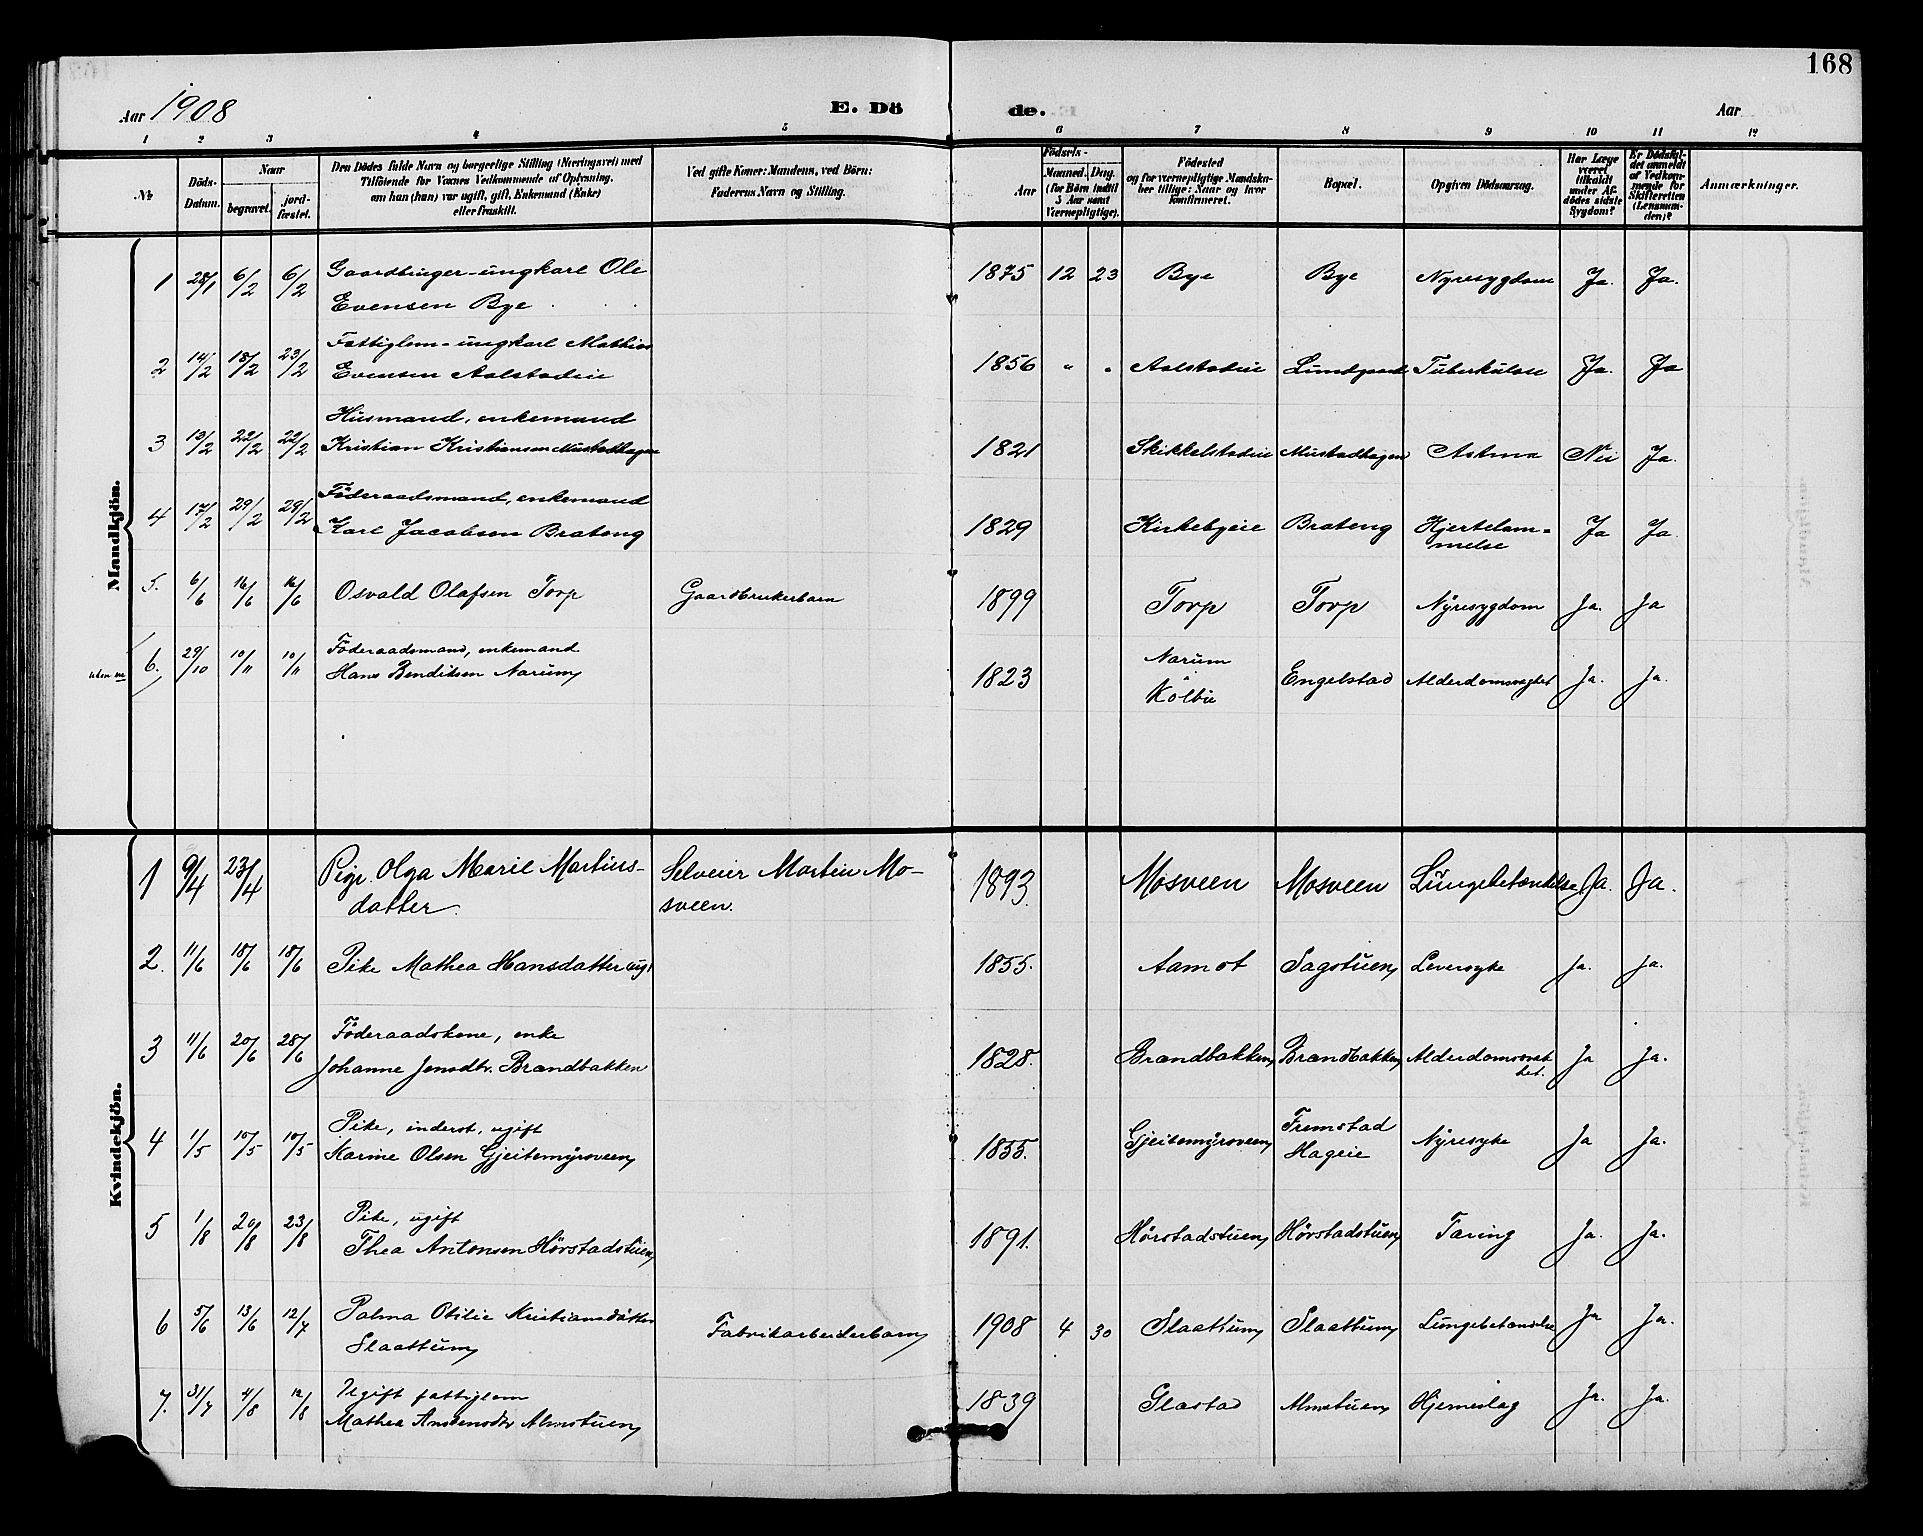 168
Aar 1908
E. Dö
de.
Aar
1 2 3 4 5 6 7 8 9 10 11 12
No.
Döds-
Datum.
Naar
begravet.
jord-
fæstet.
Den Dödes fulde Navn og borgerlige Stilling (Næringsvei) med
Tilföiende for Voxnes Vedkommende af Oplysning,
om han (hun) var ugift, gift, Enkemand (Enke)
eller fraskilt.
Ved gifte Koner: Mandens, ved Börn:
Faderens Navn og Stilling.
Födsels-
Aar
Maaned. Dag.
(for Börn indtil
5 Aar samt
Værnepligtige).
Födested
og for værnepligtige Mandska-
ber tillige: Naar og hvor
konfirmeret.
Bopæl.
Opgiven Dödsaarsag.
Har Læge
været
tilkaldt
under Af-
dödes sidste
Sygdom?
Er Dödsfal-
det anmeldt
af Vedkom-
mende for
Skifteretten
(Lensman-
den)?
Anmærkninger.
Mandkjön.
1 28/1 6/2 6/2 Gaardbruger-ungkarl Ole
Evensen Bye
1875 12 23 Bye Bye Nyresygdom Ja. Ja.
2 14/2 18/2 23/2 Fattiglem-ungkarl Mathias
Evensen Aalstadeie
1856 " " Aalstadeie Lundgaard Tuberkulose Ja. Ja
3 13/2 22/2 22/2 Husmand, enkemand
Kristian Kristiansen Mustadhagen
1821 Skikkelstadeie Mustadhagen Astma Nei Ja.
4 17/2 29/2 29/2 Föderaadsmand, enkemand
Karl Jacobsen Brateng
1829 Kirkebyeie Brateng Hjertelam-
melse Ja Ja
5. 6/6 16/6 16/6 Osvald Olafsen Torp Gaardbrukerbarn 1899 Torp Torp Nyresygdom Ja. Ja
6. 29/10 10/11 10/11 Föderaadsmand, enkemand
Hans Bendiksen Narum
1823 Narum
Kolbu Engelstad Alderdomssvaghet Ja. Ja.
Kvindekjön.
1 9/4 23/4 Pige Olga Marie Martins-
datter. Selveier Martin Mo-
sveen. 1893 Mosveen Mosveen Lungebetændelse Ja. Ja.
2. 11/6 18/6 18/6 Pike Mathea Hansdatter ug. 1855. Aamot Sagstuen Leversyke Ja. Ja.
3 11/6 20/6 28/6 Föderaadskone, enke
Johanne Jensdtr. Brandbakken
1828. Brandbakken Brandbakken Alderdomssvak
het. Ja Ja.
4 1/5 10/5 10/5 Pike, inderst, ugift
Karine Olsen Gjeitemyrsveen
1855. Gjeitemyrsveen Fremstad
Hageie Nyresyke Ja Ja.
5 1/8 20/8 23/8 Pike, ugift
Thea Antonsen Hörstadstuen
1891. Hörstadstuen Hörstadstuen Tæring Ja. Ja.
6 5/6 13/6 12/7 Palma Otilie Kristiansdatter
Slaattum Fabrikarbeiderbarn 1908 4 30 Slaattum Slaattum Lungebetændelse Ja Ja.
7. 31/7 4/8 12/8 Ugift fattiglem
Mathea Amundsdtr Almstuen
1839 Glæstad Almstuen Hjerneslag Ja. Ja.